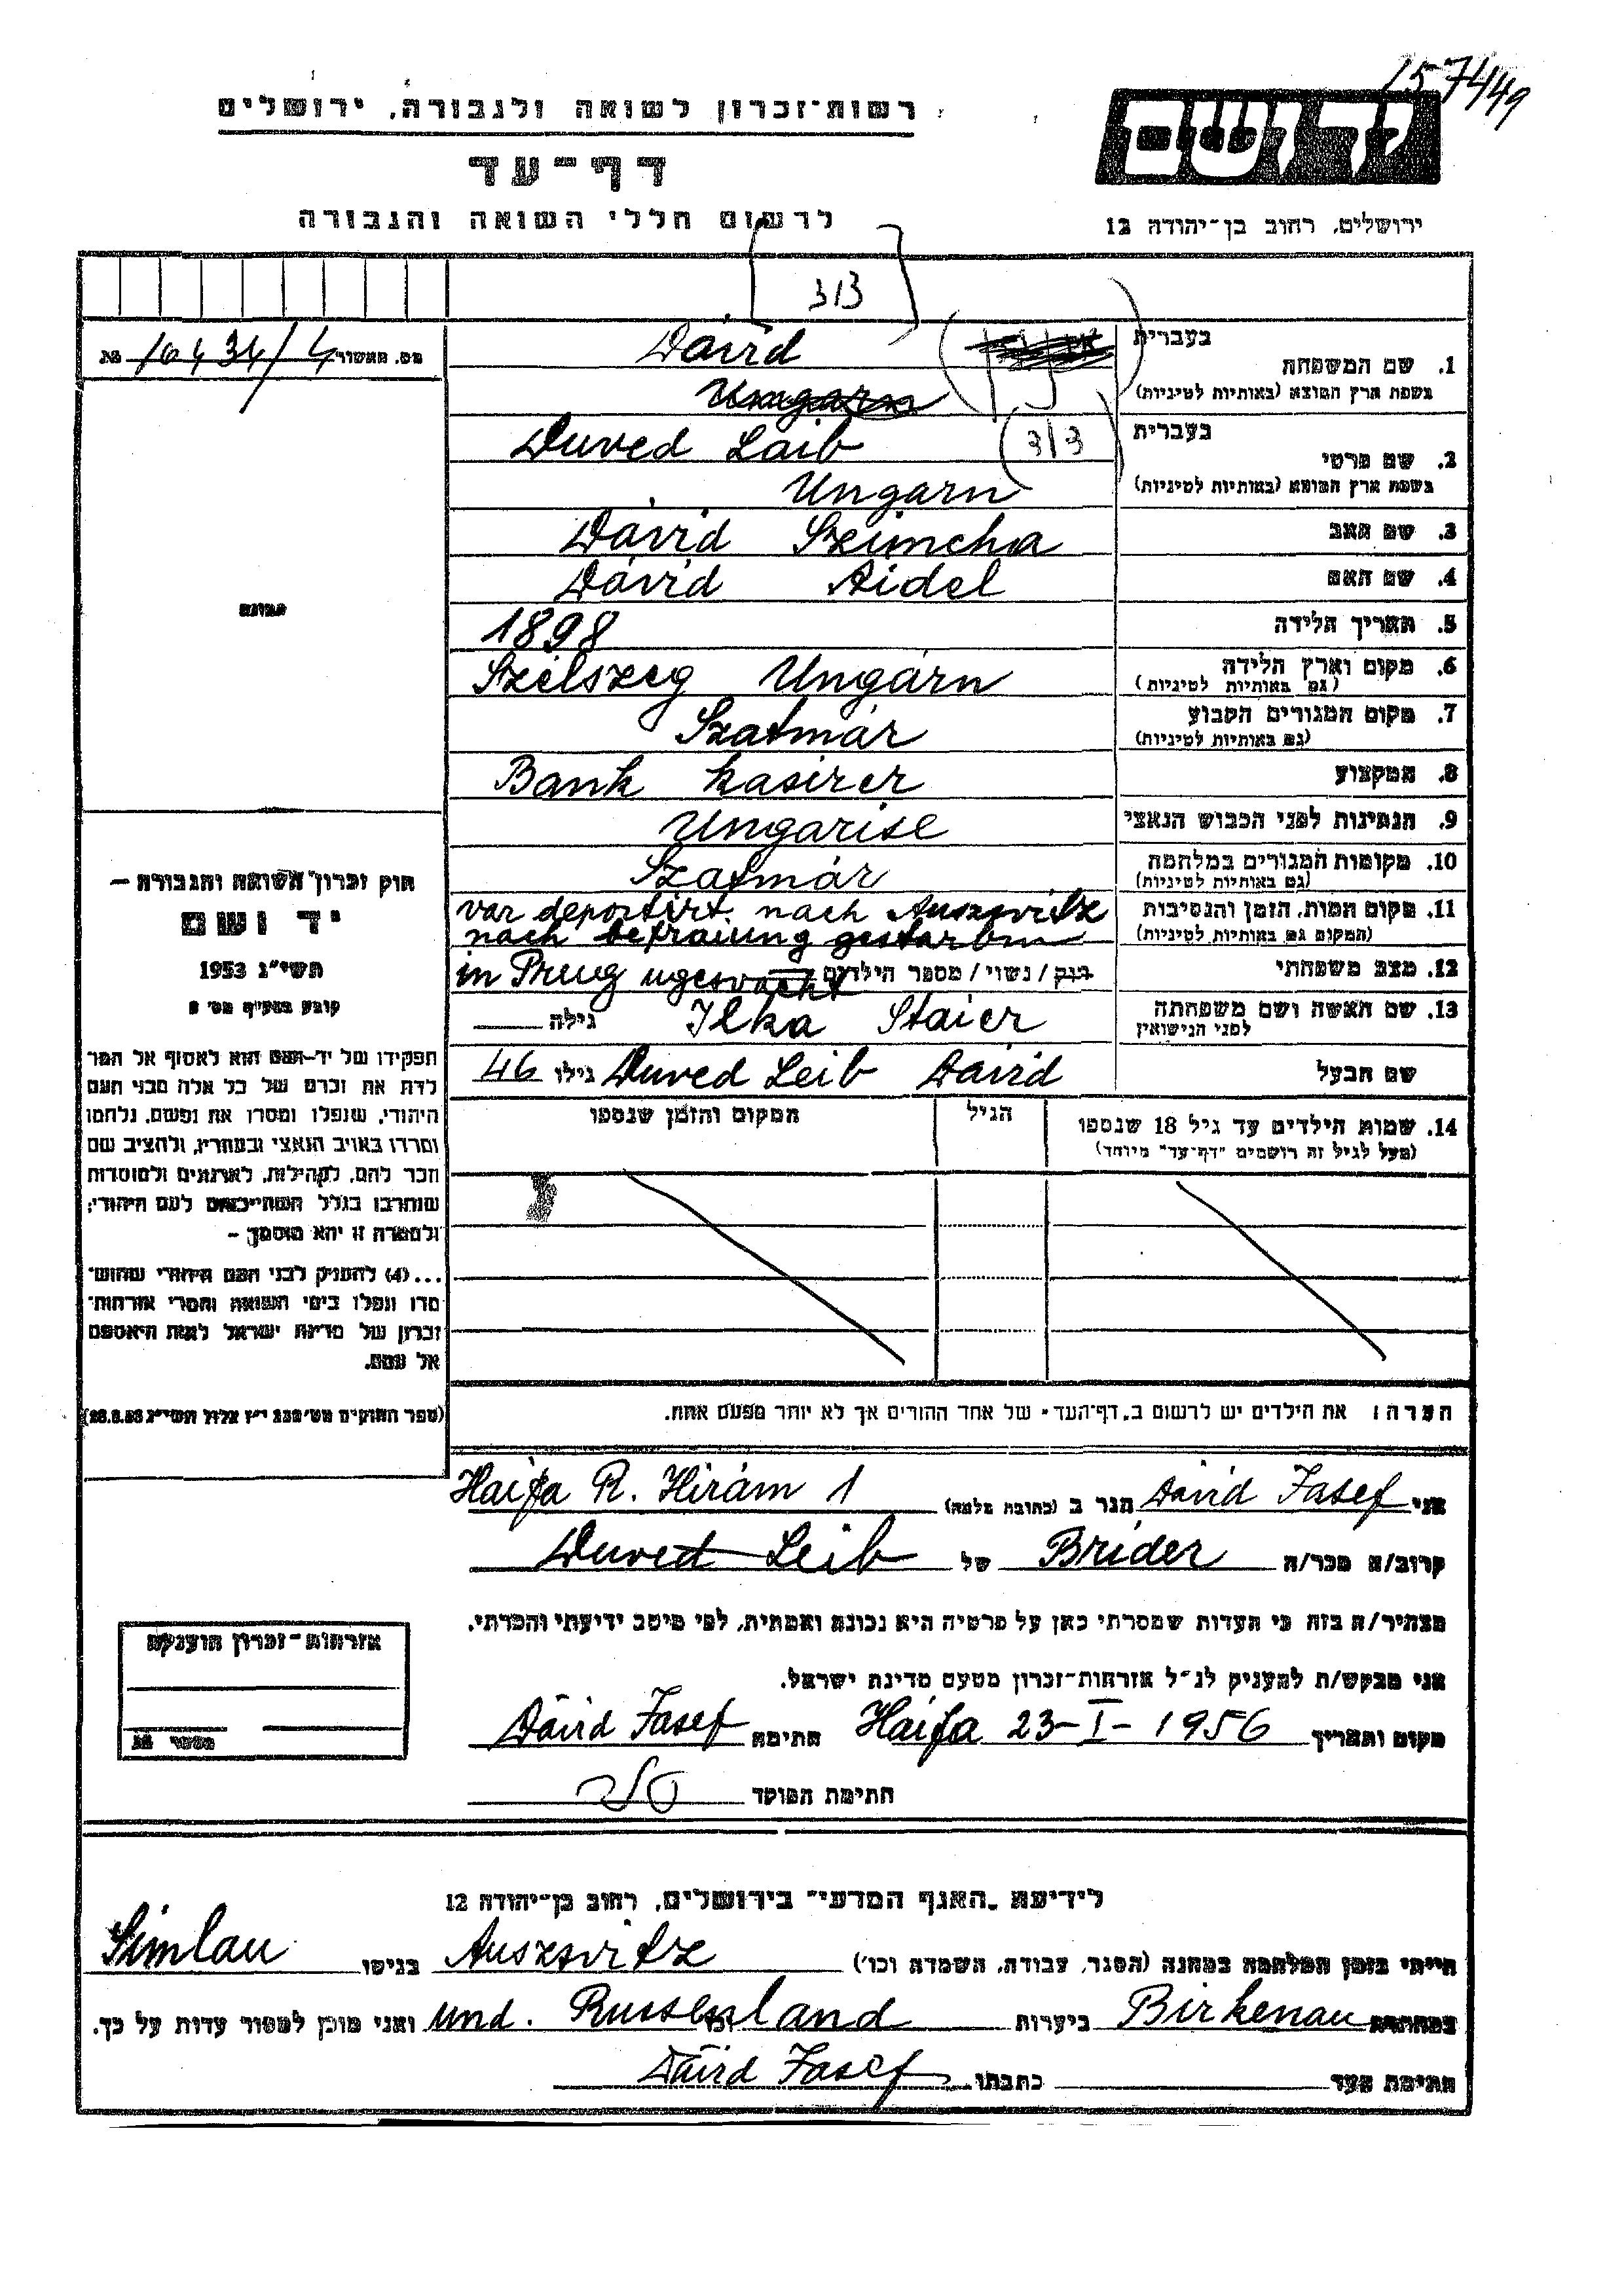 157449
רשות־זכרון לשואה ולגבורה, ירושלים
דף־עד
לרשום חללי השואה והגבורה
יד ושם
ירושלים, רחוב בן־יהודה 12
דוד
מס. האשור 16434/4 №
1. שם המשפחה
בעברית
בשפת ארץ המוצא (באותיות לטיניות)
Dávid
2. שם פרטי
בעברית
דוד
בשפת ארץ המוצא (באותיות לטיניות)
Duved Laib
Ungarn
3. שם האב
Dávid Szimcha
4. שם האם
Dávid Aidel
5. תאריך הלידה
1898
6. מקום וארץ הלידה
(גם באותיות לטיניות)
Szélszeg Ungárn
7. מקום המגורים הקבוע
(גם באותיות לטיניות)
Szatmár
8. המקצוע
Bank kasirer
9. הנתינות לפני הכבוש הנאצי
Ungarise
10. מקומות המגורים במלחמה
(גם באותיות לטיניות)
Szatmár
11. מקום המות, הזמן והנסיבות
(המקום גם באותיות לטיניות)
var deportirt nach Auszwitz
nach befraiung gestarben
12. מצב משפחתי
רוק / נשוי / מספר הילדים
in Prag
13. שם האשה ושם משפחתה
לפני הנישואין
Ilka Staier גילה
שם הבעל
Duved Leib Dávid גילו 46
14. שמות הילדים עד גיל 18 שנספו
(מעל לגיל זה רושמים "דף־עד" מיוחד)
הגיל
המקום והזמן שנספו
הערה: את הילדים יש לרשום ב„דף־העד" של אחד ההורים אך לא יותר מפעם אחת.
תמונה
חוק זכרון השואה והגבורה —
יד ושם
תשי"ג 1953
קובע בסעיף מס' 2
תפקידו של יד־ושם הוא לאסוף אל המו־
לדת את זכרם של כל אלה מבני העם
היהודי, שנפלו ומסרו את נפשם, נלחמו
ומרדו באויב הנאצי ובעוזריו, ולהציב שם
וזכר להם, לקהילות, לארגונים ולמוסדות
שנחרבו בגלל השתייכותם לעם היהודי;
ולמטרה זו יהא מוסמך: —
...(4) להעניק לבני העם היהודי שהוש־
מדו ונפלו בימי השואה והמרי אזרחות־
זכרון של מדינת ישראל לאות היאספם
אל עמם.
(ספר החוקים מס' 132 י"ז אלול תשי"ג 28.8.53)
אני Dávid Jasef הגר ב (כתובת מלאה) Haifa R. Hirám 1
קרוב/ה מכר/ה Brider של Duved Leib
מצהיר/ה בזה כי העדות שמסרתי כאן על פרטיה היא נכונה ואמתית, לפי מיטב ידיעתי והכרתי.
אני מבקש/ת להעניק לנ"ל אזרחות־זכרון מטעם מדינת ישראל.
מקום ותאריך Haifa 23-I-1956 חתימה Dávid Jasef
חתימת הפוקד
אזרחות־זכרון הוענקה
מספר №
לידיעת „האגף המדעי" בירושלים, רחוב בן־יהודה 12
הייתי בזמן המלחמה במחנה (הסגר, עבודה, השמדה וכו') Auszwitz בגיטו Simlau
במחתרת Birkenau ביערות und. Russenland וכו' ואני מוכן למסור עדות על כך.
חתימת העד כתבתו Dávid Jasef